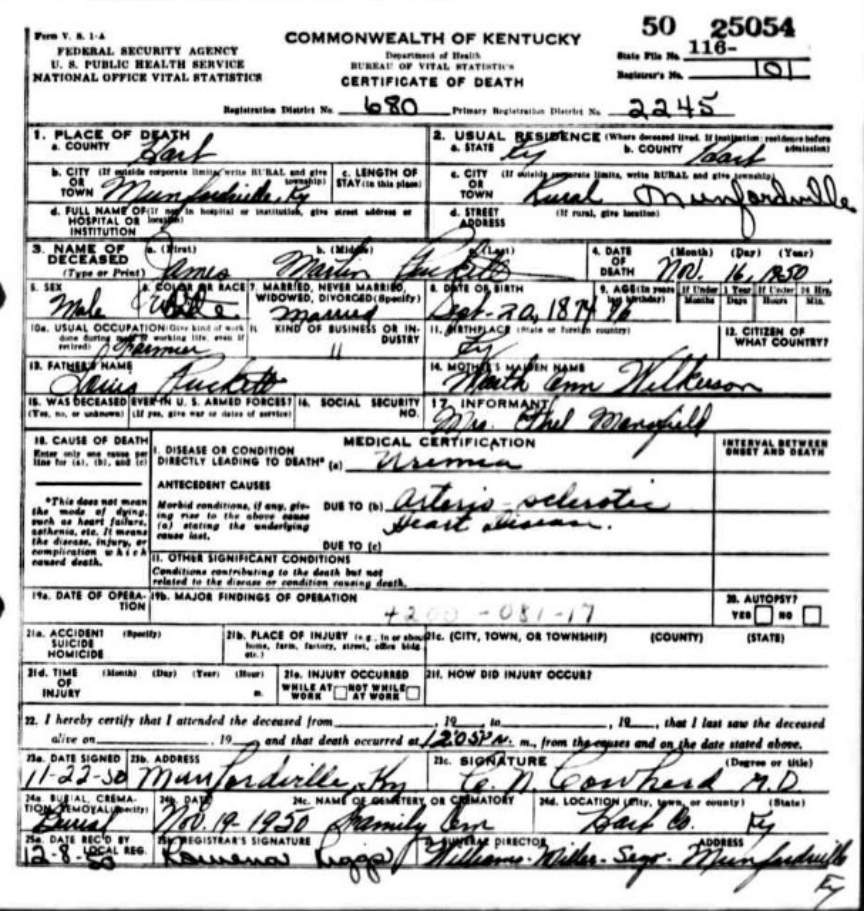 50 25054
Form V. S. 1-A
FEDERAL SECURITY AGENCY
U. S. PUBLIC HEALTH SERVICE
NATIONAL OFFICE VITAL STATISTICS
COMMONWEALTH OF KENTUCKY
Department of Health
BUREAU OF VITAL STATISTICS
CERTIFICATE OF DEATH
State File No. 116-
Registrar's No. 101
Registration District No. 680 Primary Registration District No. 2245
1. PLACE OF DEATH
a. COUNTY Hart
2. USUAL RESIDENCE (Where deceased lived. If institution: residence before admission)
a. STATE Ky b. COUNTY Hart
b. CITY (If outside corporate limits, write RURAL and give township)
OR TOWN Munfordville, Ky
c. LENGTH OF STAY (in this place)
c. CITY (If outside corporate limits, write RURAL and give township)
OR TOWN Rural Munfordville
d. FULL NAME OF (If not in hospital or institution, give street address or location)
HOSPITAL OR INSTITUTION
d. STREET ADDRESS (If rural, give location)
3. NAME OF DECEASED (Type or Print)
a. (First) b. (Middle) c. (Last)
James Martin Puckett
4. DATE OF DEATH (Month) (Day) (Year)
Nov. 16, 1950
5. SEX Male
6. COLOR OR RACE White
7. MARRIED, NEVER MARRIED, WIDOWED, DIVORCED (Specify) Married
8. DATE OF BIRTH Sept. 20, 1874
9. AGE (In years last birthday) 76
If Under 1 Year Months Days
If Under 24 Hrs. Hours Min.
10a. USUAL OCCUPATION (Give kind of work done during most of working life, even if retired) Farmer
KIND OF BUSINESS OR INDUSTRY "
11. BIRTHPLACE (State or foreign country) Ky
12. CITIZEN OF WHAT COUNTRY?
13. FATHER'S NAME
Puckett
14. MOTHER'S MAIDEN NAME
Ann Wilkerson
15. WAS DECEASED EVER IN U. S. ARMED FORCES? (Yes, no, or unknown) (If yes, give war or dates of service)
16. SOCIAL SECURITY NO.
17. INFORMANT
Mrs. Ethel Mansfield
18. CAUSE OF DEATH
Enter only one cause per line for (a), (b), and (c)
*This does not mean the mode of dying, such as heart failure, asthenia, etc. It means the disease, injury, or complication which caused death.
MEDICAL CERTIFICATION
INTERVAL BETWEEN ONSET AND DEATH
I. DISEASE OR CONDITION DIRECTLY LEADING TO DEATH* (a) Uremia
ANTECEDENT CAUSES
Morbid conditions, if any, giving rise to the above cause (a) stating the underlying cause last.
DUE TO (b) Arterio-sclerotic
Heart Disease.
DUE TO (c)
II. OTHER SIGNIFICANT CONDITIONS
Conditions contributing to the death but not related to the disease or condition causing death.
19a. DATE OF OPERATION
19b. MAJOR FINDINGS OF OPERATION
4200 - 081-17
20. AUTOPSY?
YES NO
21a. ACCIDENT SUICIDE HOMICIDE (Specify)
21b. PLACE OF INJURY (e.g., in or about home, farm, factory, street, office bldg. etc.)
21c. (CITY, TOWN, OR TOWNSHIP) (COUNTY) (STATE)
21d. TIME OF INJURY (Month) (Day) (Year) (Hour) m.
21e. INJURY OCCURRED
WHILE AT WORK NOT WHILE AT WORK
21f. HOW DID INJURY OCCUR?
22. I hereby certify that I attended the deceased from , 19 to , 19 , that I last saw the deceased
alive on , 19 and that death occurred at 1205P m., from the causes and on the date stated above.
23a. DATE SIGNED 23b. ADDRESS 23c. SIGNATURE (Degree or title)
11-22-50 Munfordville, Ky C. N. Cowherd M.D.
24a. BURIAL, CREMATION, REMOVAL (Specify) 24b. DATE 24c. NAME OF CEMETERY OR CREMATORY 24d. LOCATION (City, town, or county) (State)
Burial Nov. 19-1950 Family Cem Hart Co. Ky
25a. DATE REC'D BY LOCAL REG. REGISTRAR'S SIGNATURE FUNERAL DIRECTOR ADDRESS
12-8-50 Rowena Riggs Williams-Miller-Sego- Munfordville
Ky